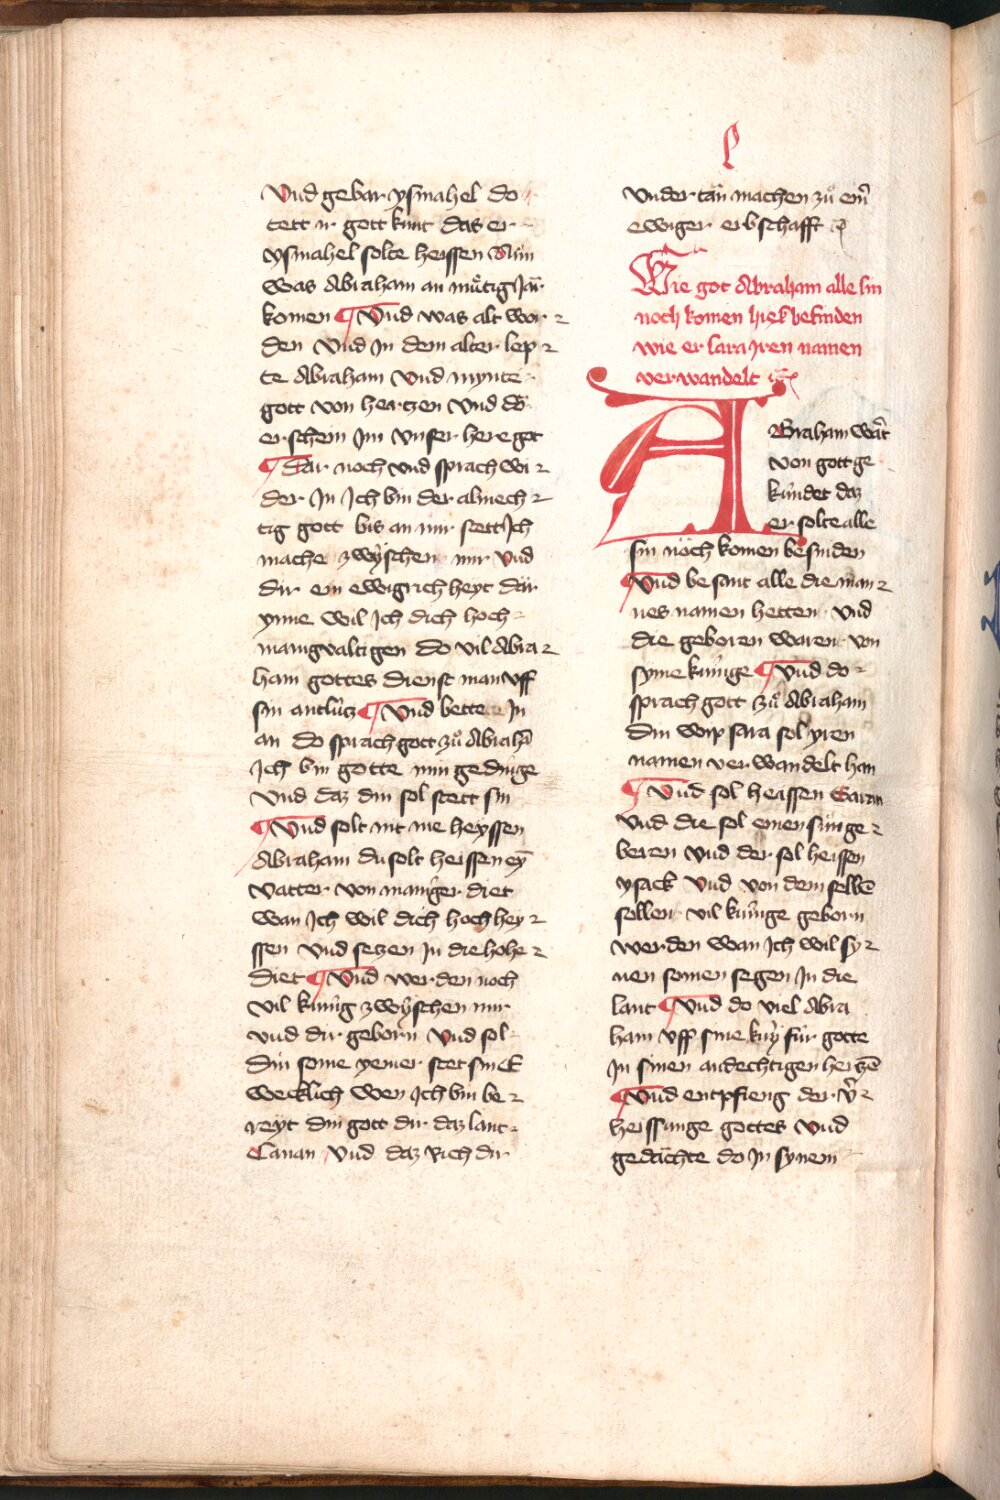 Vnd gebar ysmahel do
tett ir gott kunt das er
ysmahel solte heissen Nün
was Abraham an müͦtig Jar
komen ¶ Vnd was alt wor⸗
den Vnd In dem alter lep⸗
te Abraham Vnd mynte
gott von hertzen Vnd do
erschein Im Vnser here got
¶ Dar noch vnd sprach wi⸗
der In Ich bin der almech⸗
tig gott bis an mir stett Ich
mache zwÿschen mir vnd
dir ein ewigrichheyt dar
ynne wil Ich dich hoch⸗
manigvaltigen Do vil Abra⸗
ham gottes dienst man vff
sin antlücz ¶ Vnd bette In
an do sprach gott zuͦ Abrahā
Ich bin gotte min gedinge
Vnd daz din sol stett sin
¶ Vnd solt nit me heyssen
Abraham du solt heissen eȳ
Vatter von maniger diet
wan Ich wil dich hoch hey⸗
ssen Vnd setzen In die hohe⸗
diet ¶ Vnd werden noch
vil künig zwÿschen mir
vnd dir geborn Vnd sol
din some yemer stet sin E
wecklich wen Ich bin be⸗
reyt din gott dir daz lant⸗
Canan Vnd daz Rich dir
Vnder tan machen zuͦ ein̄
ewiger erbschafft
Wie got Abraham alle sin
noch komen hieß besniden
wie er sara Jren namen
verwandelt
ABraham wart̄
von gott ge
kündet daz
er solte alle
sin noch komen besniden
¶ Vnd besant alle die man⸗
nes namen hetten Vnd
die geboren waren von
syme künige ¶ Vnd do⸗
sprach gott zuͦ Abraham
Din wip sara sol yren
namen ver wandelt han
¶ Vnd sol heissen Saran
Vnd die sol einen sün ge⸗
beren Vnd der sol heissen
ysack Vnd von dem selbē
sollen vil künige geborn
werden wan Ich wil sy⸗
nen somen segen In die
lant ¶ Vnd do viel Abra
ham vff sine knÿ für gotte
In sinen andechtigen hertzē
¶ Vnd entpfieng der v̄⸗
heissunge gottes Vnd
gedachte do In synem